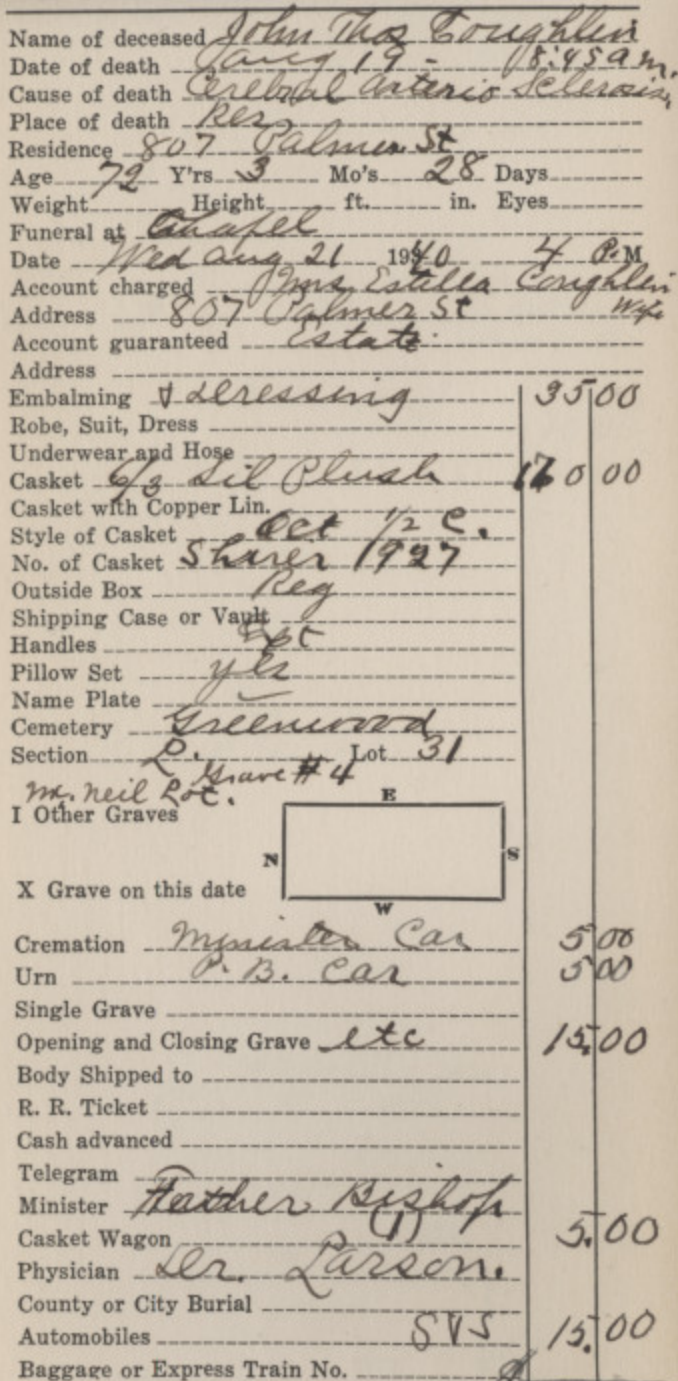 Name of deceased John Thos Coughlin
Date of death Aug 19 - 8:45 a m.
Cause of death Cerebral Arterio Sclerosis
Place of death Res
Residence 807 Palmer St
Age 72 Y'rs 3 Mo's 28 Days
Weight Height ft. in. Eyes
Funeral at Chapel
Date Wed Aug 21 1940 4 P.M
Account charged Mrs Estella Coughlin
Address 807 Palmer St Wife
Account guaranteed Estate
Address
Embalming & Dressing 35 00
Robe, Suit, Dress
Underwear and Hose
Casket 6/3 Sil Plush 00
Casket with Copper Lin.
Style of Casket Oct 1/2 C.
No. of Casket Sharer 1927
Outside Box Reg
Shipping Case or Vault
Handles
Pillow Set yes
Name Plate
Cemetery Greenwood
Section Lot 31
Grave # 4
Mc Neil Lot.
I Other Graves
E
N S
X Grave on this date
W
Cremation Minister Car 5 00
Urn P. B. Car 5 00
Single Grave
Opening and Closing Grave etc 15.00
Body Shipped to
R. R. Ticket
Cash advanced
Telegram
Minister Father Bishop
Casket Wagon (1) 5.00
Physician Dr. Larson.
County or City Burial
Automobiles 15.00
Baggage or Express Train No.